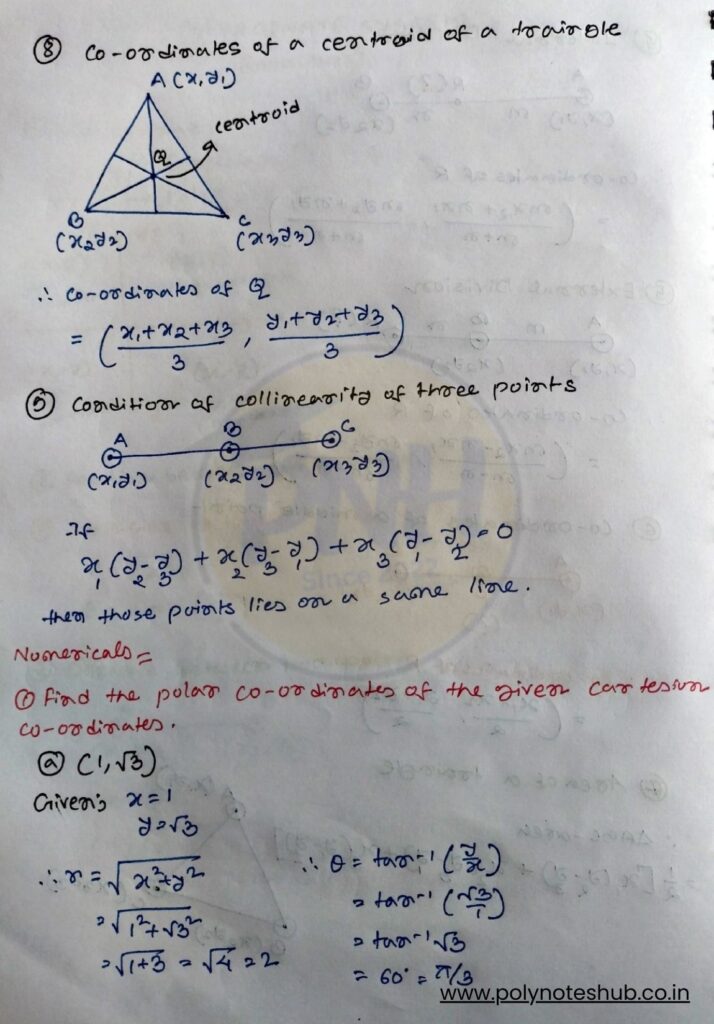 ⑧ Co-ordinates of a centroid of a traingle
A (x₁y₁)
centroid
Q
B
(x₂y₂)
C
(x₃y₃)
∴ Co-ordinates of Q
= ( (x₁+x₂+x₃)/3 , (y₁+y₂+y₃)/3 )
⑨ Condition of collinearity of three points
A B C
(x₁y₁) (x₂y₂) (x₃y₃)
If
x₁(y₂-y₃) + x₂(y₃-y₁) + x₃(y₁-y₂) = 0
then those points lies on a same line.
Since
Numericals =
① Find the polar co-ordinates of the given cartesian
co-ordinates.
ⓐ (1, √3)
Given; x = 1
y = √3
∴ r = √(x²+y²)
= √(1²+√3²)
= √(1+3) = √4 = 2
∴ θ = tan⁻¹(y/x)
= tan⁻¹(√3/1)
= tan⁻¹√3
= 60° = π/3
www.polynoteshub.co.in